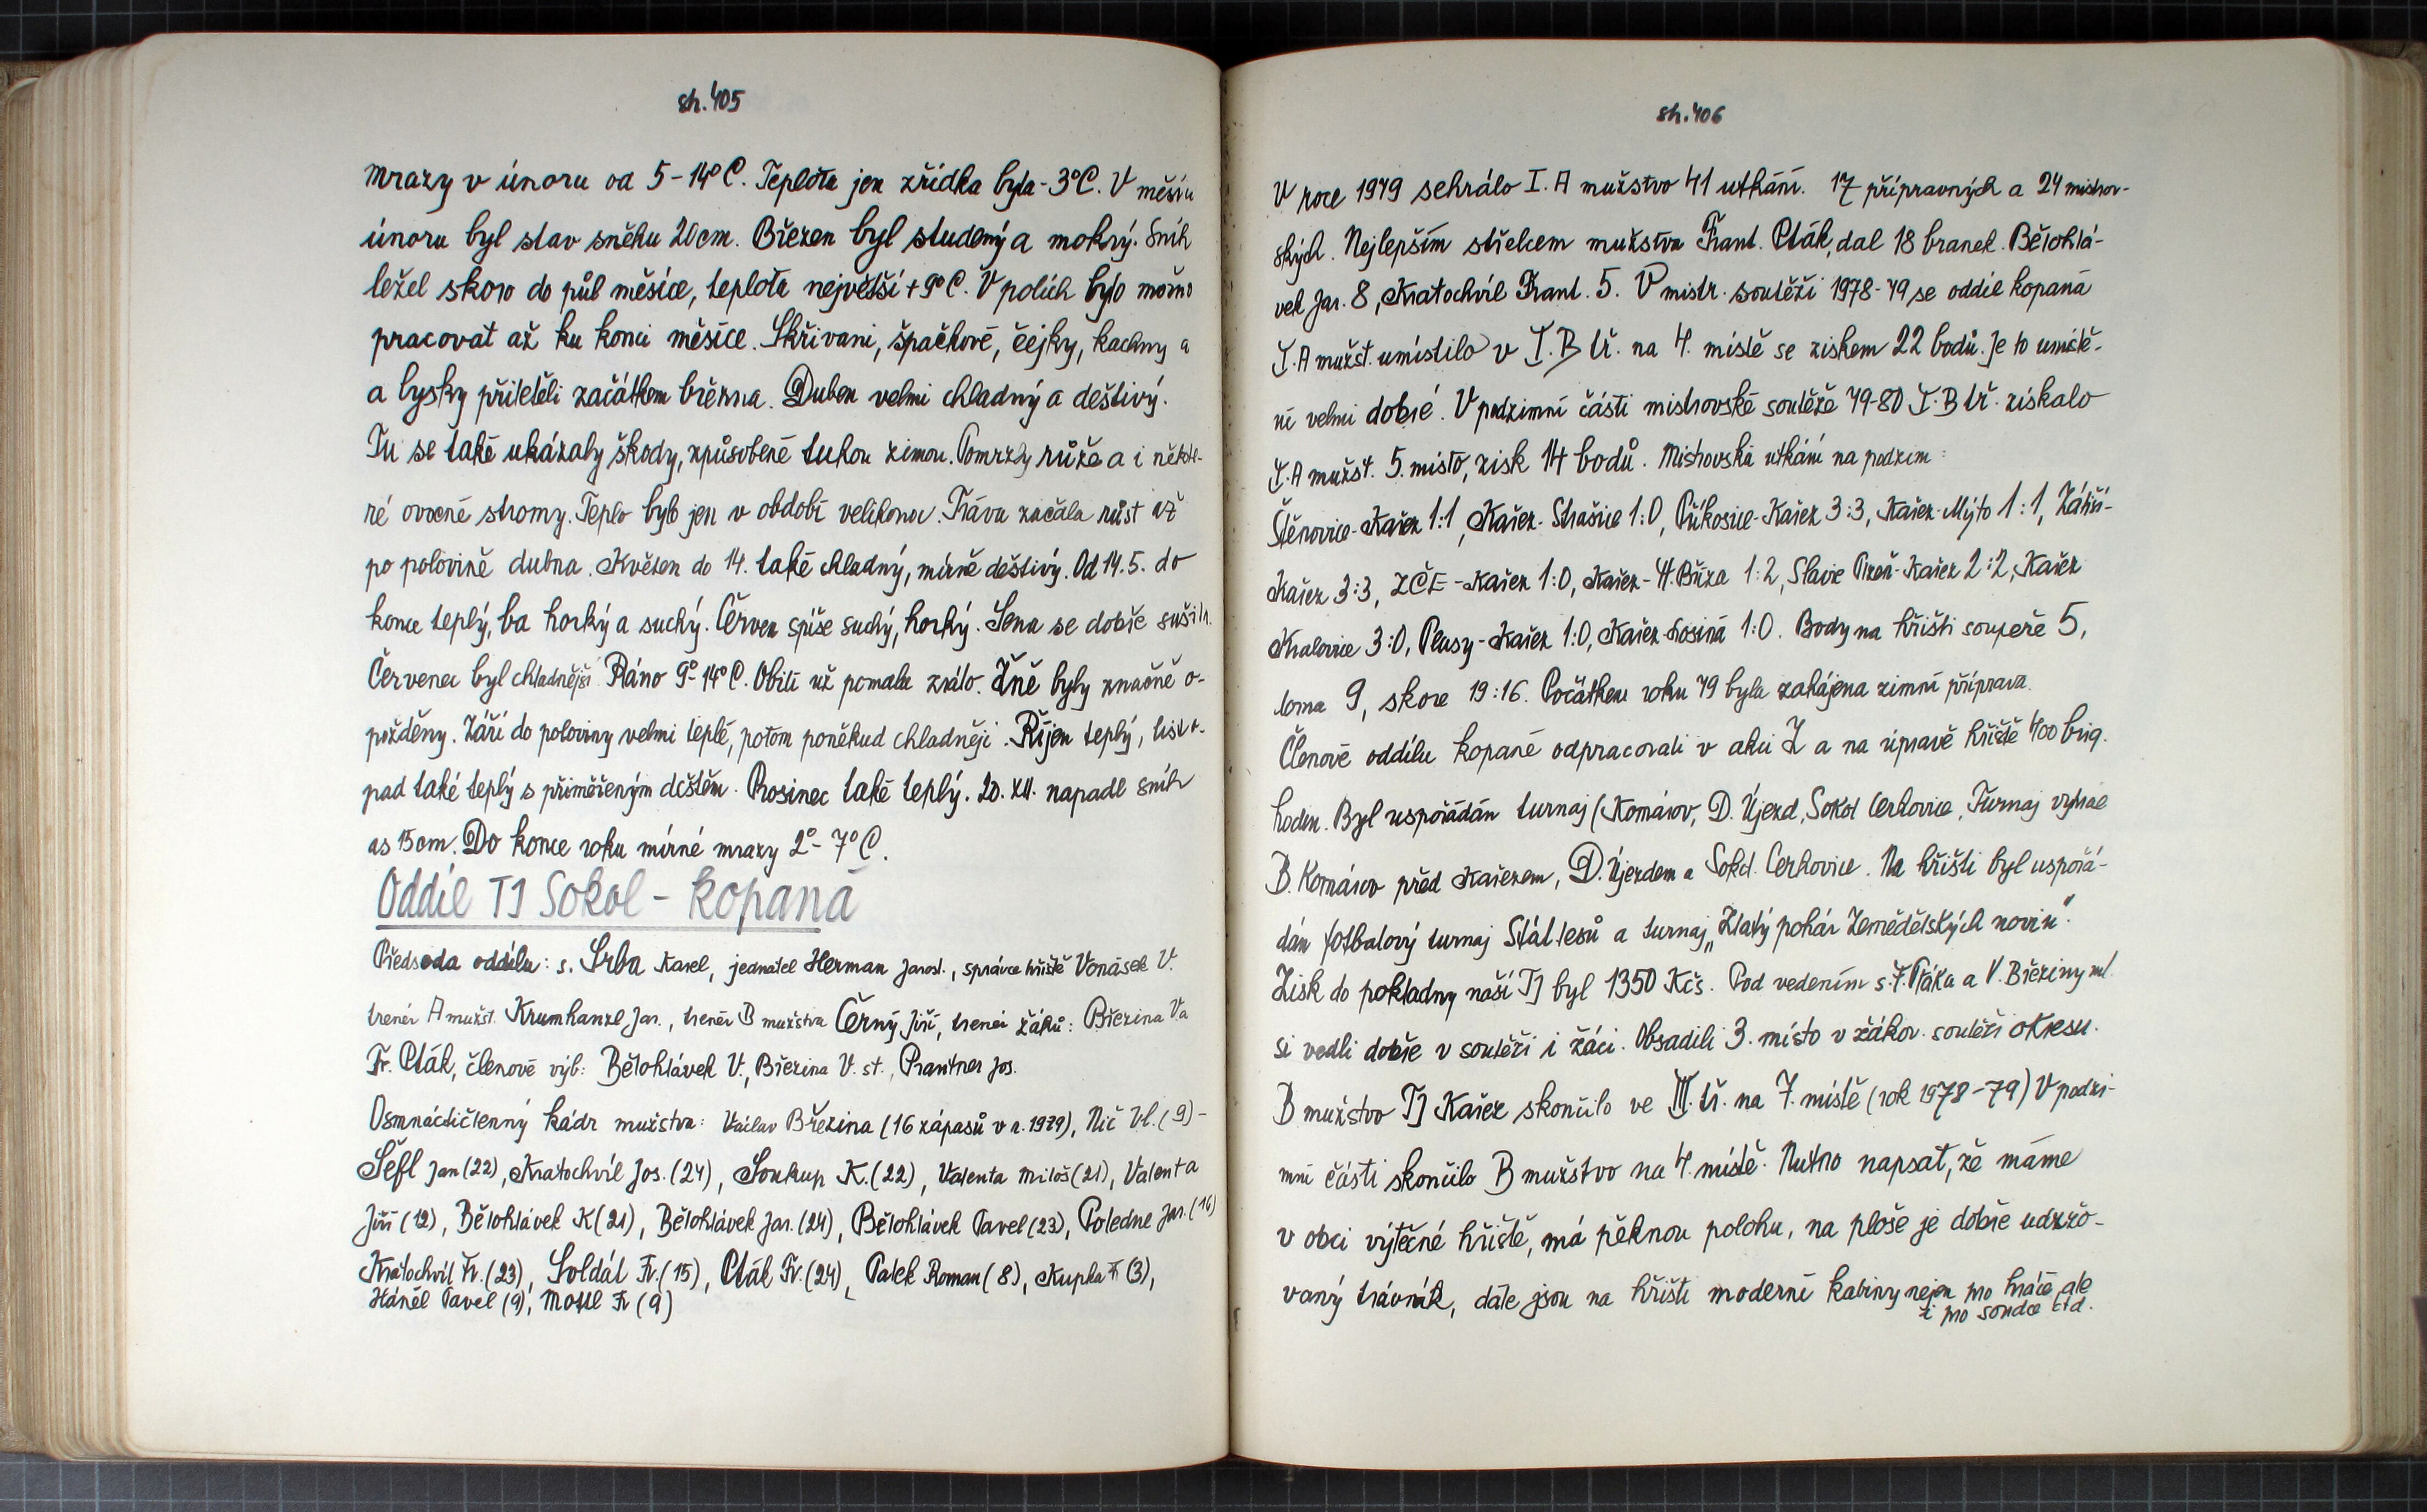 str. 405
mrazy v únoru od 5-14°C. Teplota jen zřídka byla -3°C. V měsíci
únoru byl stav sněhu 20cm. Březen byl studený a mokrý. Sníh
ležel skoro do půl měsíce, teplota největší +9°C. V polích bylo možno
pracovat až ku konci měsíce. Skřivani, špačkové, čejky, kachny a
a lysky přiletěli začátkem března. Duben velmi chladný a deštivý.
Tu se také ukázaly škody, způsobené tuhou zimou. Pomrzly růže a i někte-
ré ovocné stromy. Teplo bylo jen v období velikonoc. Tráva začala růst až
po polovině dubna. Květen do 14. také chladný, mírně deštivý. Od 14.5. do
konce teplý, ba horký a suchý. Červen spíše suchý, horký. Sena se dobře sušila.
Červenec byl chladnější. Ráno 9°-14°C. Obilí už pomalu zrálo. Žně byly značně o-
požděny. Září do poloviny velmi teplé, potom poněkud chladněji. Říjen teplý, listo-
pad také teplý s přiměřeným deštěm. Prosinec také teplý. 20.XII. napadl sníh
as 15cm. Do konce roku mírné mrazy 2°-7°C.
Oddíl TJ Sokol - kopaná
Předseda oddílu: s. Srba Karel, jednatel Herman Jarosl., správce hřiště Vonásek V.
trenér A mužst. Krumhanzl Jar., trenér B mužstva Černý Jiří, trenéi žáků: Březina V a
Fr. Pták, členové výb: Bělohlávek V., Březina V. st., Prantner Jos.
Osmnáctičlenný kádr mužstva: Václav Březina (16 zápasů v r. 1979), Nič Vl. (9)-
Šefl Jan (22), Kratochvíl Jos. (24), Soukup K. (22), Valenta Miloš (21), Valenta
Jiří (12), Bělohlávek K (21), Bělohlávek Jar. (24), Bělohlávek Pavel (23), Poledne Jar. (16)
Kratochvíl Fr. (23), Soldát Fr. (15), Pták Fr. (24), Palek Roman (8), Kupka F (3),
Háněl Pavel (9), Motll Fr (9)
str. 406
V roce 1979 sehrálo I. A mužstvo 41 utkání. 17 přípravných a 24 mistrov-
ských. Nejlepším střelcem mužstva Frant. Pták, dal 18 branek. Bělohlá-
vek Jar. 8, Kratochvíl Frant. 5. V mistr. soutěži 1978-79 se oddíl kopaná
I. A mužst. umístilo v I. B tř. na 4. místě se ziskem 22 bodů. Je to umístě-
ní velmi dobré. V podzimní části mistrovské soutěže 79-80 I. B tř. získalo
I. A mužst. 5. místo, zisk 14 bodů. Mistrovská utkání na podzim:
Štěnovice-Kařez 1:1, Kařez-Strašice 1:0, Příkosice-Kařez 3:3, Kařez-Mýto 1:1, Zátiší-
Kařez 3:3, ZČE-Kařez 1:0, Kařez-H. Bříza 1:2, Slavie Plzeň-Kařez 2:2, Kařez
Kralovice 3:0, Plasy-Kařez 1:0, Kařez-Losiná 1:0. Body na hřišti soupeře 5,
doma 9, skore 19:16. Počátkem roku 79 byla zahájena zimní příprava.
Členové oddílu kopané odpracovali v akci Z a na úpravě hřiště 400 brig.
hodin. Byl uspořádán turnaj (Komárov, D. Újezd, Sokol Cerhovice, Turnaj vyhrál
B. Komárov před Kařezem, D. Újezdem a Sokol. Cerhovice. Na hřišti byl uspořá-
dán fotbalový turnaj Stát lesů a turnaj „Zlatý pohár Zemědělských novin".
Zisk do pokladny naší TJ byl 1350 Kčs. Pod vedením s. F. Ptáka a V. Březiny ml.
si vedli dobře v soutěži i žáci. Obsadili 3. místo v žákov. soutěži okresu.
B mužstvo TJ Kařez skončilo ve III. tř. na 7. místě (rok 1978-79) V podzi-
mní části skončilo B mužstvo na 4. místě. Nutno napsat, že máme
v obci výtečné hřiště, má pěknou polohu, na ploše je dobře udržo-
vaný trávník, dále jsou na hřišti moderní kabiny nejen pro hráče, ale
i pro soudce atd.